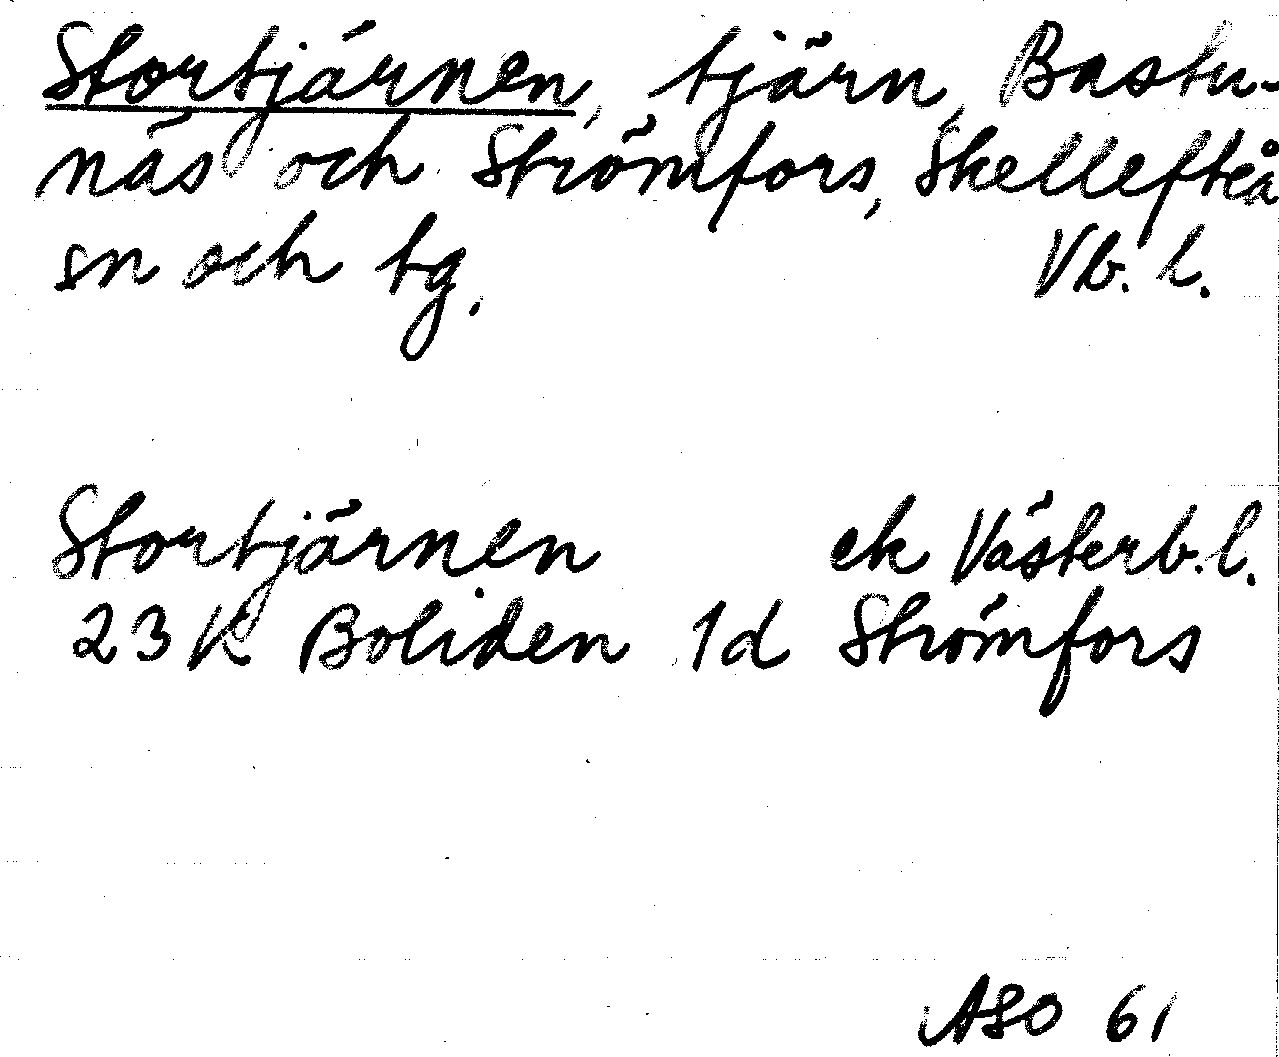 Stortjärnen, tjärn, Bastu-
näs och Strömfors, Skellefteå
sn och tg. Vb. l.
Stortjärnen ek Västerb. l.
23 K Boliden 1d Strömfors
ASO 61